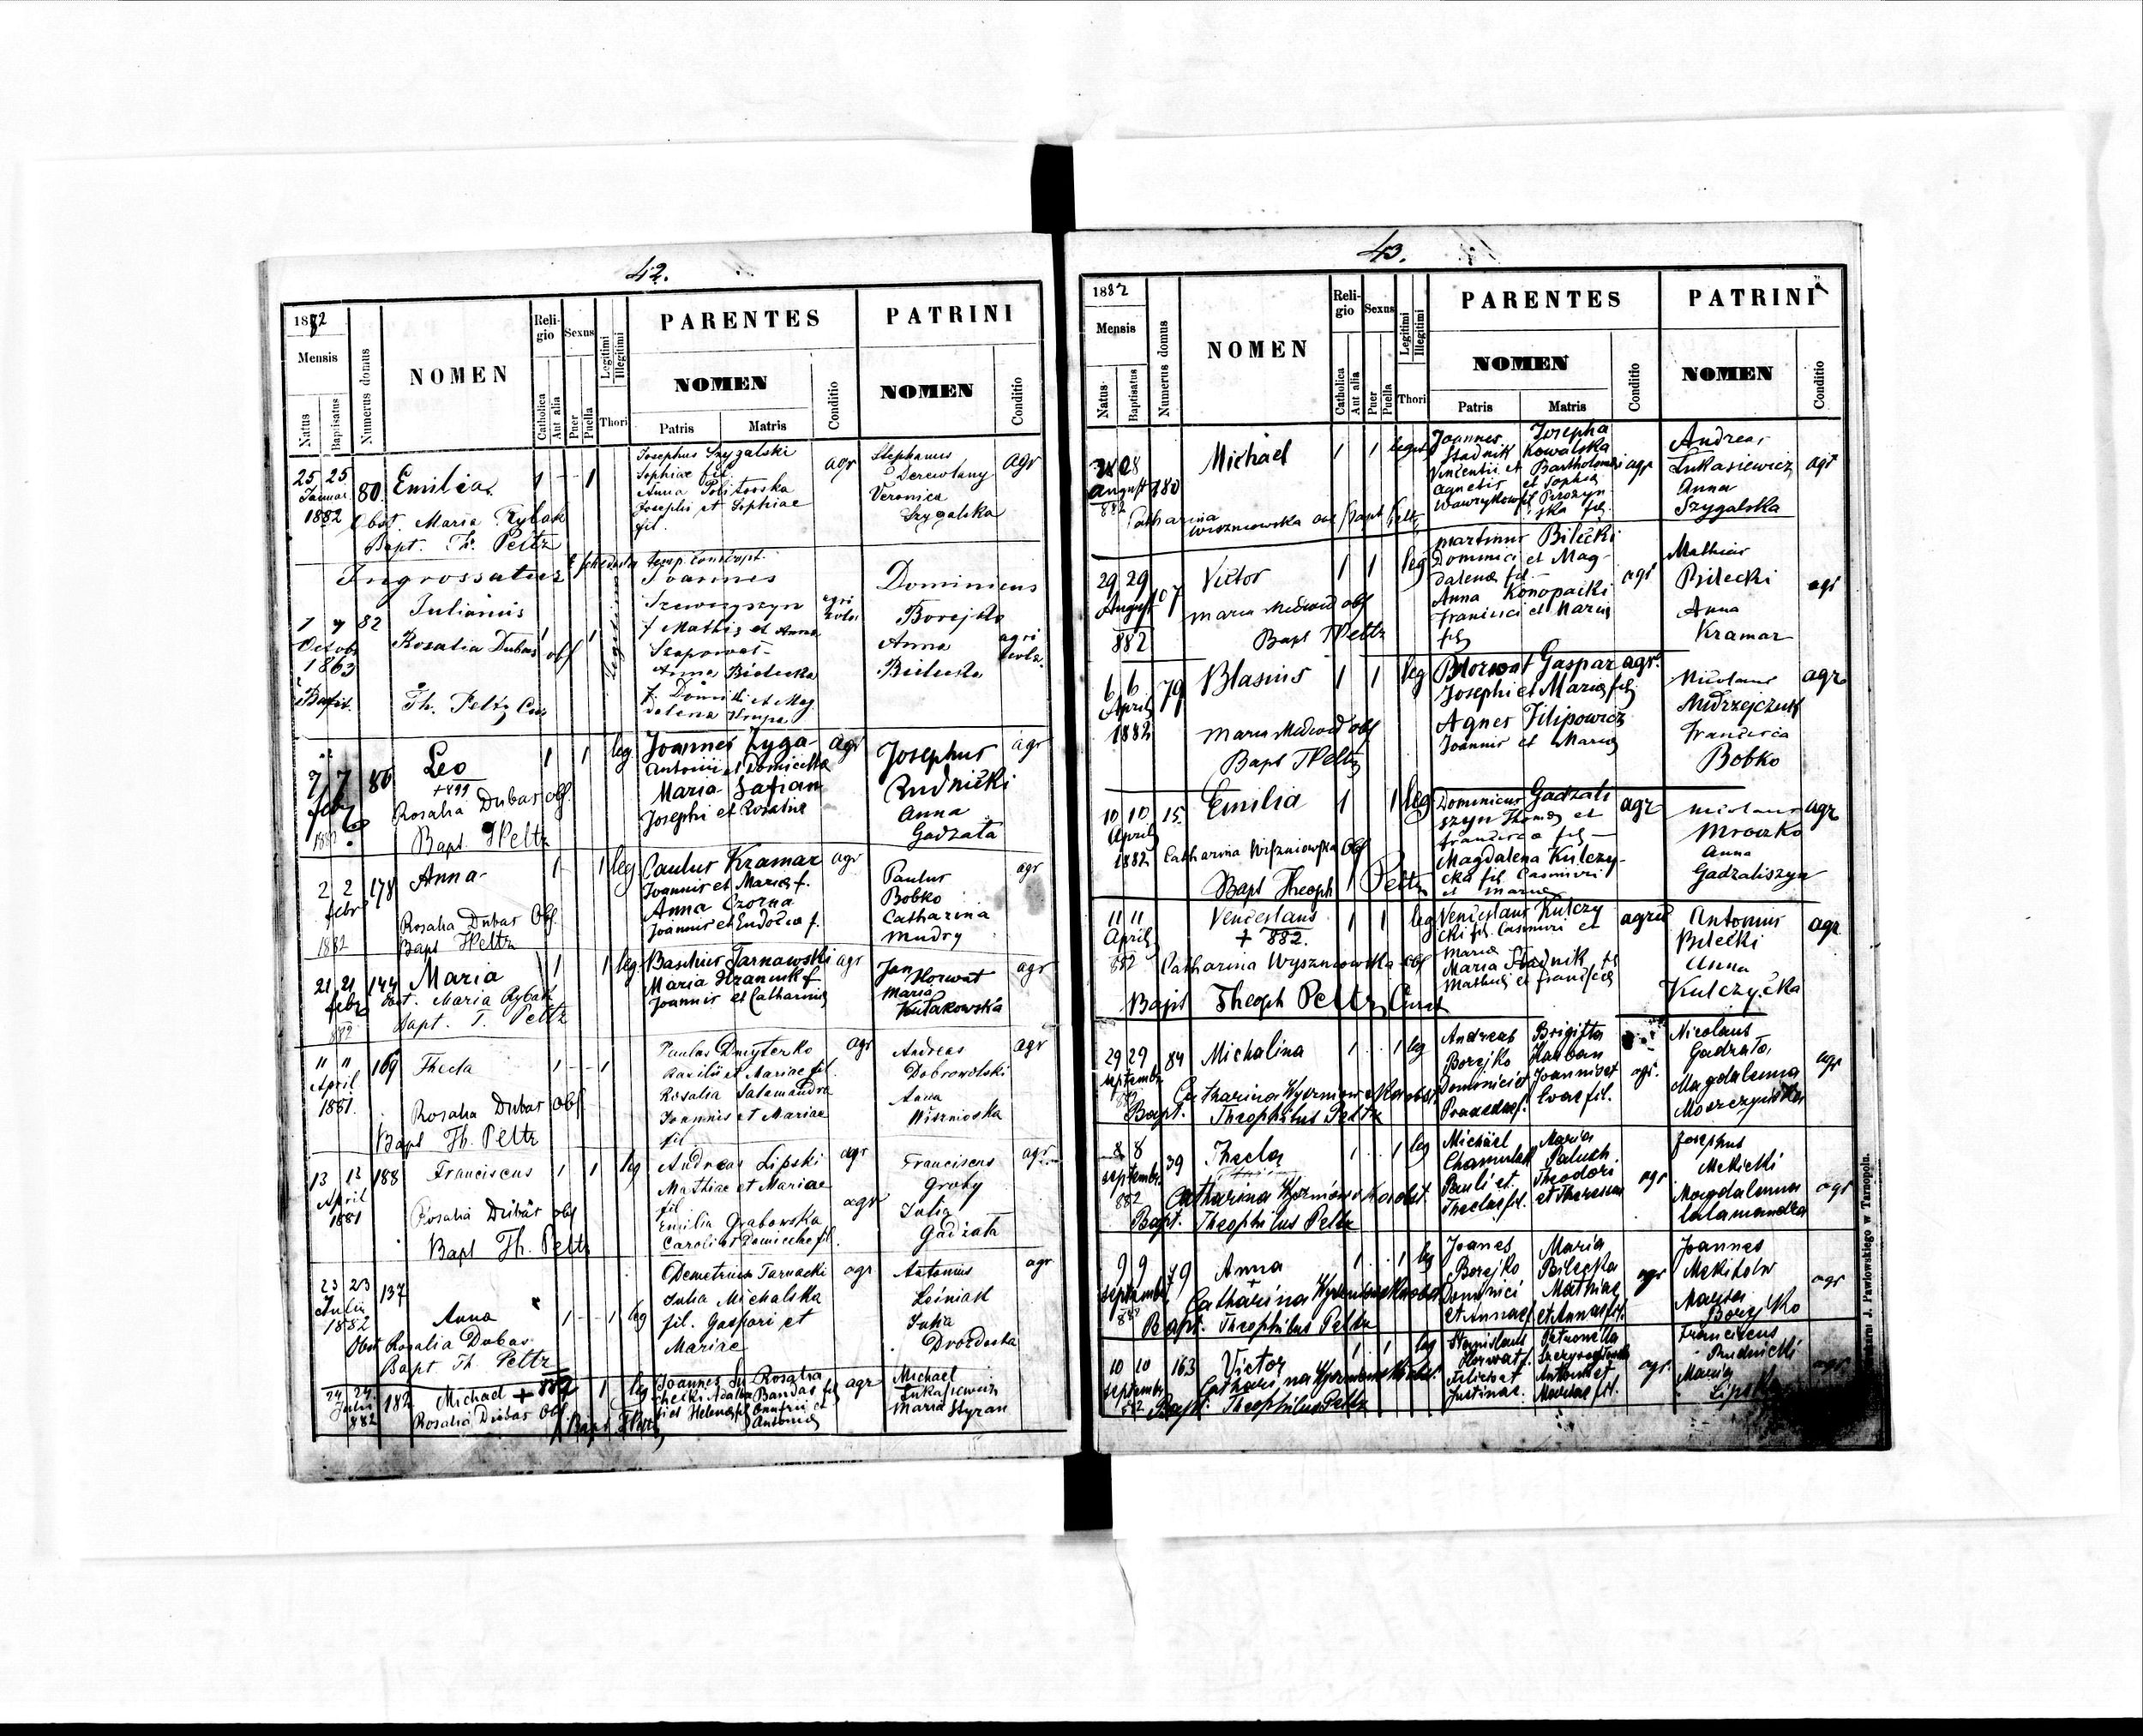 42.
1882
Mensis
Natus
Baptisatus
Numerus domus
NOMEN
Religio
Catholica
Aut alia
Sexus
Puer
Puella
Legitimi
Illegitimi
Thori
PARENTES
NOMEN
Patris
Matris
Conditio
PATRINI
NOMEN
Conditio
25 25
Januar
1882
80.
Emilia
1
1
Obst. Maria Rybak
Bapt. Th. Peltz
Josephus Szygalski
Sophiae fil
Anna
Josephi et Sophiae
fil.
agr
Stephanus
Derewlany
Veronica
Szygalska
agr
Ingrossatus
temp. conscript.
7
Octobr
1863
82
Julianus
Rosalia Dubas obs
1
Bapt.
Th. Peltz
Joannes
Szewczyszyn
f. Mathis et Anna
Anna Bielecka
agri
Dominicus
Borejko
Anna
Bielecka
agri
7 7
febr
1882
80
Leo
1
1
leg
Rosalia Dubas obs.
Bapt. T Peltz
Joannes Zyga
Antonii et Domicella
Maria Safian
Josephi et Rosaliae
agr
Josephus
Rudnicki
Anna
Gadzała
agr
2 2
febr
1882
178
Anna
1
1
leg
Rosalia Dubas Obs.
Bapt T Peltz
Paulus Kramar
Joannis et Maria f.
Anna Czorna
Joannis et Eudocia f.
agr
Paulus
Bobko
Catharina
Mudry
agr
21 21
febr
882
144
Maria
1
1
leg
Obst. Maria Rybak
Bapt. T. Peltz
Basilius Tarnawski
Maria Hraniuk f
Joannis et Catharina
agr
Jan Horwat
Maria
Kułakowska
agr
11 11
April
1881.
169
Thecla
1
1
Rosalia Dubas obs
Bapt Th. Peltz
Paulus Dmyterko
Basilii et Mariae fil.
Rosalia Salamandra
Joannis et Mariae
fil
agr
Andreas
Dobrowolski
Anna
Wisznioska
agr
13 13
April
1881
188
Franciscus
1
1
leg
Rosalia Dubas obs
Bapt Th. Peltz
Andreas Lipski
Mathiae et Mariae
fil
Emilia Grabowska
Caroli et Domicellae fil.
agr
agr
Franciscus
Groby
Julia
Gadzała
agr
23 23
Julii
1882
137
Anna
1
1
leg
Obst Rosalia Dubas
Bapt Th. Peltz
Demetrius Tarnacki
Julia Michalska
fil. Gaspari et
Mariae
agr
Antonius
Leśniak
Julia
agr
24 24
Julii
882
182
Michael + 882
1
leg
Rosalia Dubas Obs
Bapt T Peltz
Joannes
Rosalia
Bandas
Helena
Onufrii et
Antonia
agr
Michael
Łukasiewicz
Maria Styran
43.
1882
Mensis
Natus
Baptisatus
Numerus domus
NOMEN
Religio
Catholica
Aut alia
Sexus
Puer
Puella
Legitimi
Illegitimi
Thori
PARENTES
NOMEN
Patris
Matris
Conditio
PATRINI
NOMEN
Conditio
28
August
882
180
Michael
1
1
Catharina
Wiszniowska obs Bapt Peltz
Joannes Josepha
Stadnik Kowalska
Vincentii et Bartholomei
Agnetis et Sophia
agr
Andreas
Łukasiewicz
Anna
Szygalska
agr
29 29
August
882
107
Victor
1
1
leg
Maria Medwid obs
Bapt T Peltz
Martinus Bilecki
Dominici et Mag-
dalena fil-
Anna Konopacki
Francisci et Maria
fil
agr
Mathias
Bilecki
Anna
Kramar
agr
6 6
April
1882
79
Blasius
1
1
leg
Maria Medwid obs
Bapt T Peltz
Horwat Gaspar
Josephi et Maria fil
Agnes Filipowicz
Joannis et Maria
agr
Nicolaus
Andrzejczuk
Francisca
Bobko
agr
10 10
April
1882
15.
Emilia
1
1
leg
Catharina Wiszniowska Obs
Bapt Theoph Peltz
Dominicus Gadzali
szyn Thomas et
Francisca fil
Magdalena Kulczy-
cka fil Casimiri
et Maria
agr
Nicolaus
Mroczko
Anna
Gadzaliszyn
agr
11 11
April
882
Venceslaus
+ 882.
1
1
leg
Catharina Wyszniowska obs
Bapt Theoph Peltz Curat
Venceslaus Kulczy
cki fil. Casimiri et
Maria
Maria Stadnik
Mathias et Francisca
agr
Antonius
Bilecki
Anna
Kulczycka
agr
29 29
septembr
84
Michalina
1
1
leg
Catharina Wyszniowska obst
Bapt. Theophilus Peltz
Andreas Brigitta
Borejko Harban
Dominici et Joannis et
Praxedae f. Evae fil.
agr.
Nicolaus
Gadzała
Magdalenna
agr
8 8
septembr
882
39
Thecla
1
1
leg
Catharina Wyszniowska obst.
Bapt. Theophilus Peltz
Michael Maria
Paluch
Pauli et Theodori
Theclae fil. et Theresiae
agr
Josephus
Mekitki
Magdalenna
Salamandra
agr
9 9
septembr
49
Anna
1
1
leg
Catharina Wyszniowska obst
Bapt. Theophilus Peltz
Joanes Maria
Borejko Bilecka
Dominici Mathiae
et Annae f. et Annae fil.
agr
Joannes
Marya
Borejko
agr
10 10
septembr
882
163
Victor
1
1
leg
Catharina Wyszniowska obst.
Bapt. Theophilus Peltz
Stanislaus Petronella
Horwat f.
Felicis et Antonii et
Justinae. Mariae fil.
agr.
Franciscus
Rudnicki
Maria
Lipska
agr
Drukarni J. Pawłowskiego w Tarnopolu.